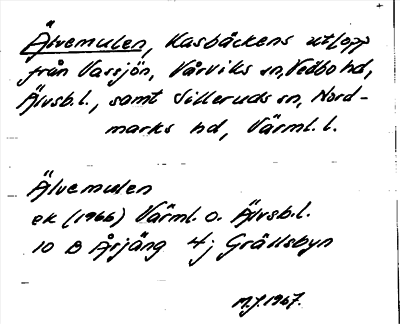 Älvemulen, Kasbäckens utlopp
från Vassjön, Vårviks sn, Vedbo hd,
Älvsb.l., samt Silleruds sn, Nord-
marks hd, Värml. l.
Älvemulen
ek (1966) Värml. o. Älvsb.l.
10 B Årjäng 4j Grällsbyn
M.J. 1967.